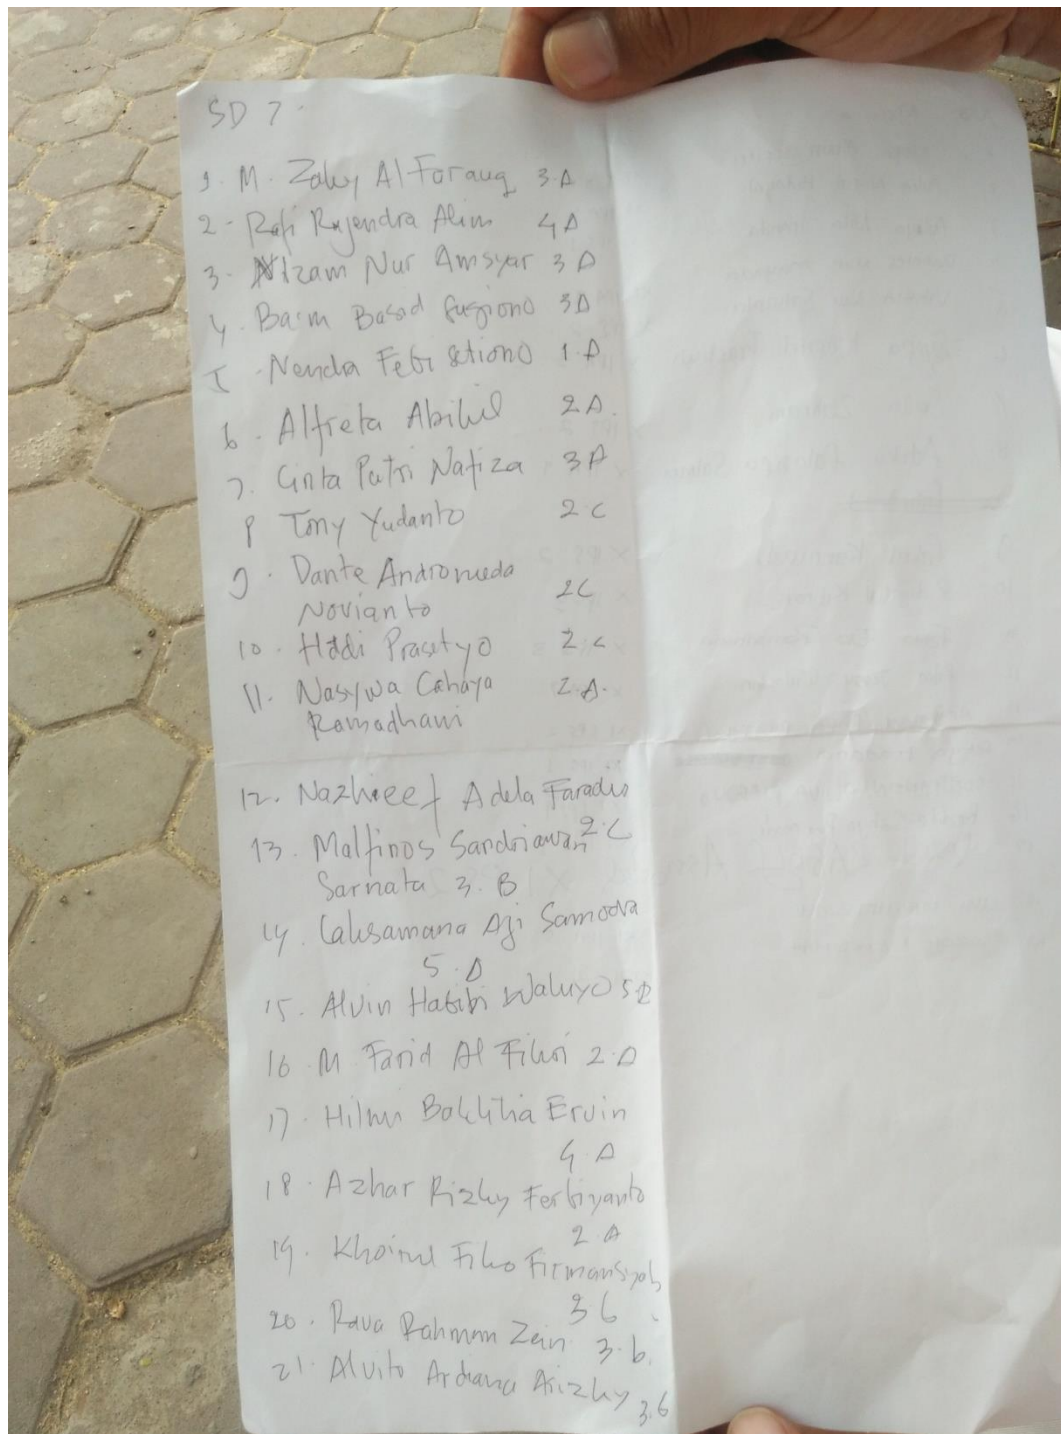 SD 7.
1. M. Zaky Al Faruq 3.A
2. Rafi Rajendra Alim 4A
3. Nizam Nur Amsyar 3A
4. Baim Basid Sugiono 3A
5. Nendra Febi Setiono 1.A
6. Alfreta Abihil 2A.
7. Cinta Putri Nafiza 3A
8 Tony Yudanto 2.C
9. Dante Andromeda
Novianto 2C
10. Hadi Prasetyo 2 C
11. Nasywa Cahaya 2.A.
Ramadhani
12. Nazhieef Adela Faradis
2.C
13. Malfinos Sandriawan
Sarnata 3. B
14. Laksamana Aji Samodra
5.A
15. Alvin Habibi Waluyo 5
16. M Farid Al Fikri 2.A
17. Hilmi Ervin
4.A
18. Azhar Rizky Ferbiyanto
2 A
19. Khoirul Fiko Firmansyah
3 b
20. Rava Rahman Zein 3.b.
21. Alvito Ardiana Arizky 3.b